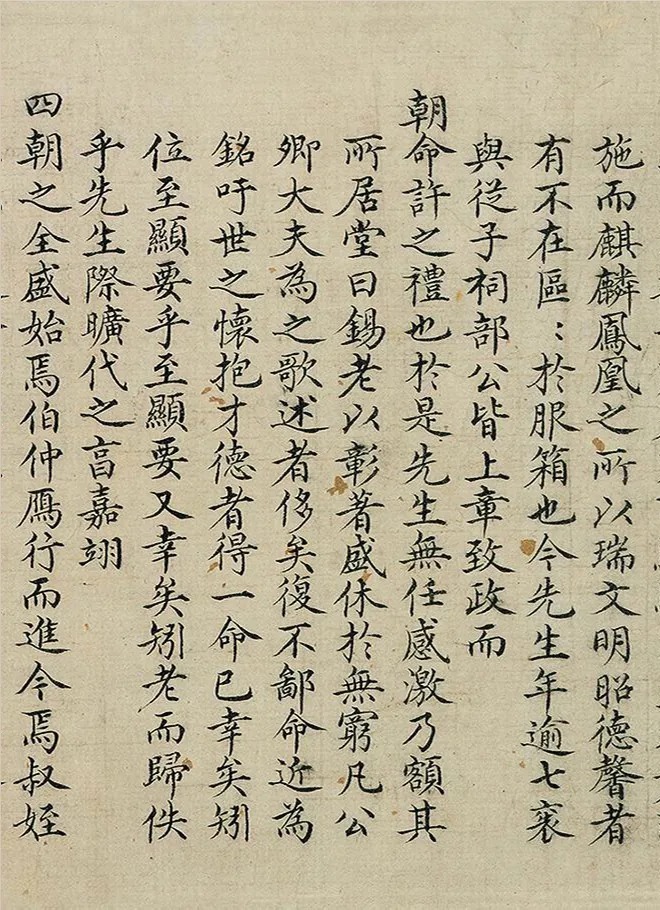 施而麒麟鳳凰之所以瑞文明昭德馨者
有不在區:於服箱也今先生年逾七袠
與從子祠部公皆上章致政而
朝命許之禮也於是先生無任感激乃額其
所居堂曰錫老以彰著盛休於無窮凡公
卿大夫為之歌述者侈矣復不鄙命近為
銘吁世之懷抱才德者得一命已幸矣矧
位至顯要乎至顯要又幸矣矧老而歸佚
乎先生際曠代之亯嘉翊
四朝之全盛始焉伯仲鴈行而進今焉叔姪